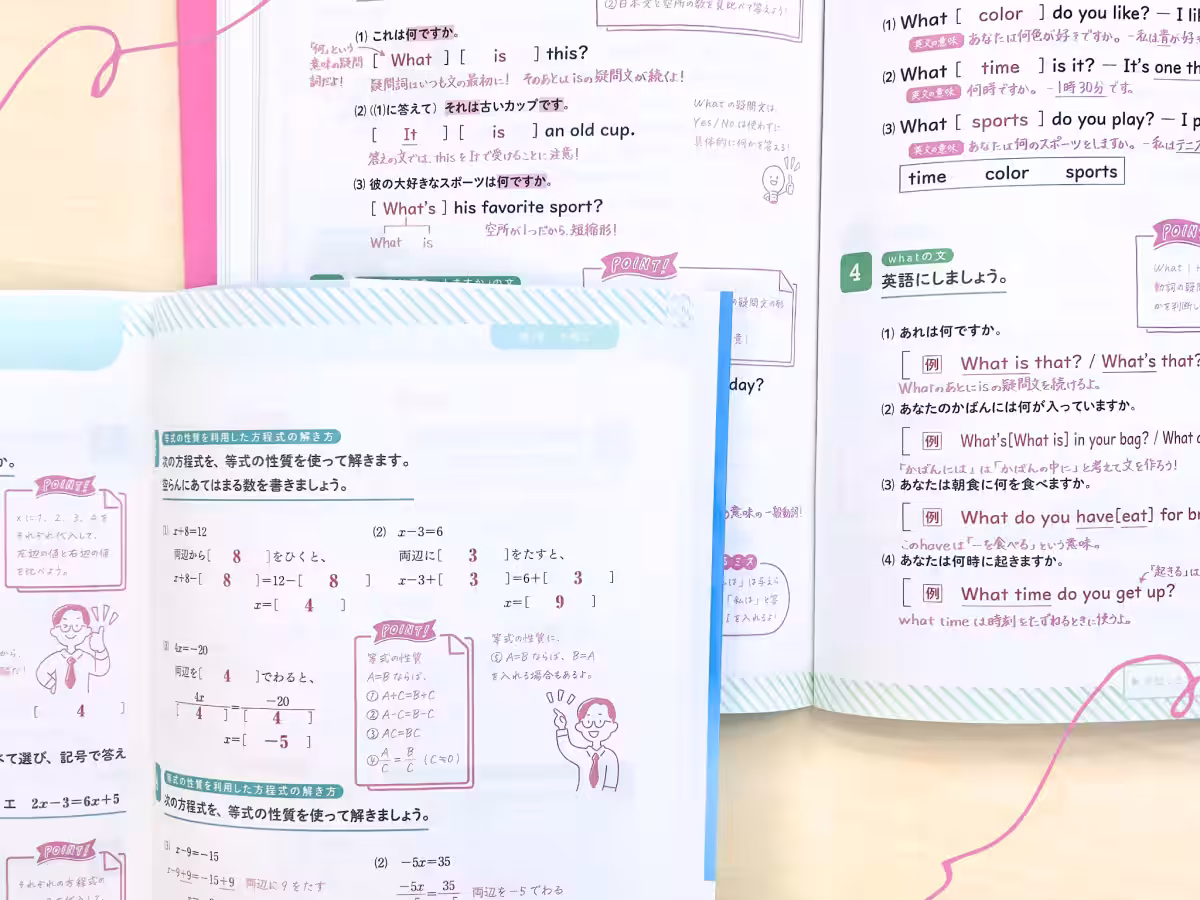 ②日本文と空所の数を見比べて答えよう!
(1) これは何ですか。
「何」という
意味の疑問
詞だよ!
[ What ] [ is ] this?
疑問詞はいつも文の最初に! そのあとはisの疑問文が続くよ!
(2) ((1)に答えて) それは古いカップです。
[ It ] [ is ] an old cup.
答えの文では、thisをItで受けることに注意!
Whatの疑問文は、
Yes/Noは使わずに
具体的に何かを答える!
(3) 彼の大好きなスポーツは何ですか。
[ What's ] his favorite sport?
What is
空所が1つだから、短縮形!
POINT!
の疑問文の形
day?
意味の一般動詞!
ミス
(1) What [ color ] do you like? — I lik
英文の意味 あなたは何色が好きですか。 -私は青が好き
(2) What [ time ] is it? — It's one th
英文の意味 何時ですか。 -1時30分です。
(3) What [ sports ] do you play? — I p
英文の意味 あなたは何のスポーツをしますか。 -私はテニス
time color sports
POIN
What 1
動詞の疑
かを判断し
4 whatの文
英語にしましょう。
(1) あれは何ですか。
[ 例 What is that? / What's that?
Whatのあとにisの疑問文を続けるよ。
(2) あなたのかばんには何が入っていますか。
[ 例 What's[What is] in your bag? / What
「かばんには」は「かばんの中に」と考えて文を作ろう!
(3) あなたは朝食に何を食べますか。
[ 例 What do you have[eat] for br
このhaveは「~を食べる」という意味。
(4) あなたは何時に起きますか。
「起きる」は
[ 例 What time do you get up?
what timeは時刻をたずねるときに使うよ。
か。
POINT!
xに1、2、3、4を
それぞれ代入して、
左辺の値と右辺の値
を比べよう。
から、
[ 4 ]
べて選び、記号で答え
エ 2x−3=6x+5
POINT!
それぞれの方程式の
等式の性質を利用した方程式の解き方
次の方程式を、等式の性質を使って解きます。
空らんにあてはまる数を書きましょう。
(1) x+8=12
両辺から[ 8 ]をひくと、
x+8−[ 8 ]=12−[ 8 ]
x=[ 4 ]
(2) x−3=6
両辺に[ 3 ]をたすと、
x−3+[ 3 ]=6+[ 3 ]
x=[ 9 ]
(3) 4x=−20
両辺を[ 4 ]でわると、
4x/[ 4 ]=−20/[ 4 ]
x=[ −5 ]
POINT!
等式の性質
A=Bならば、
① A+C=B+C
② A−C=B−C
③ AC=BC
④ A/C=B/C (C≠0)
等式の性質に、
⑤ A=Bならば、B=A
を入れる場合もあるよ。
等式の性質を利用した方程式の解き方
次の方程式を、等式の性質を使って解きましょう。
(1) x−9=−15
x−9+9=−15+9 両辺に9をたす
(2) −5x=35
−5x/ =35/ 両辺を−5でわる